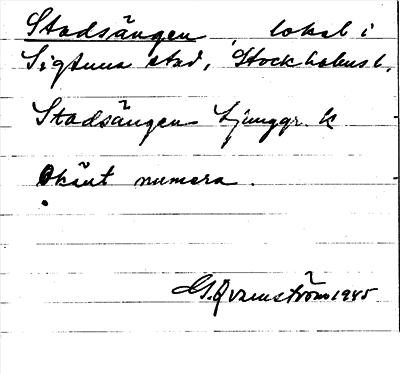 Stadsängen, lokal i
Sigtuna stad, Stockholms l.
Stadsängen Ljunggr. k
Okänt numera.
G. Qvarnström 1945